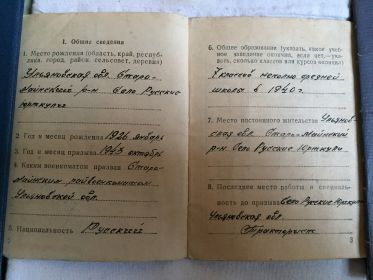 I. Общие сведения
1. Место рождения (область, край, респуб-
лика, город, район, сельсовет, деревня)
Ульяновская обл. Старо-
Майнский р-н село Русские
Юрткули
2. Год и месяц рождения 1926 январь
3. Год и месяц призыва 1943 октябрь
4. Каким военкоматом призван Старо-
майнским райвоенкоматом
Ульяновской обл.
5. Национальность Русский
6. Общее образование (указать, какое учеб-
ное заведение окончил, если нет,—ука-
зать, сколько классов или курсов окончил)
7 классов неполно средней
школа в 1940 г.
7. Место постоянного жительства Ульянов-
ская обл. Старо-Майнский
р-н село Русские Юрткули
8. Последнее место работы и специаль-
ность до призыва Село Русские Юрткули
Ульяновская обл.
Тракторист
3